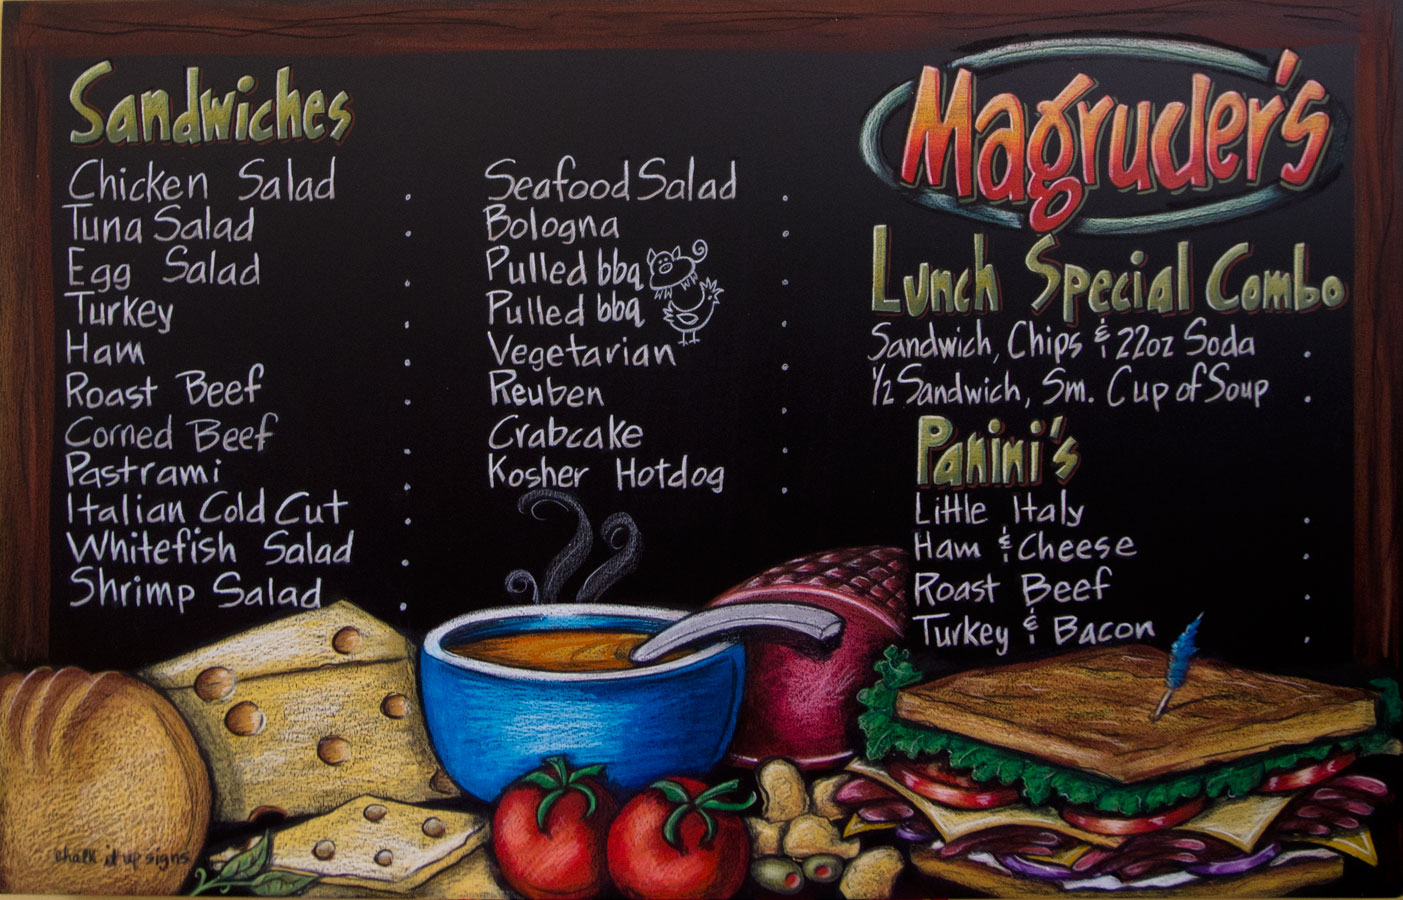 Sandwiches
Chicken Salad
Tuna Salad
Egg Salad
Turkey
Ham
Roast Beef
Corned Beef
Pastrami
Italian Cold Cut
Whitefish Salad
Shrimp Salad
Seafood Salad
Bologna
Pulled bbq
Pulled bbq
Vegetarian
Reuben
Crabcake
Kosher Hotdog
Magruder's
Lunch Special Combo
Sandwich, Chips & 22oz Soda
1/2 Sandwich, Sm. Cup of Soup
Panini's
Little Italy
Ham & Cheese
Roast Beef
Turkey & Bacon
chalk it up signs